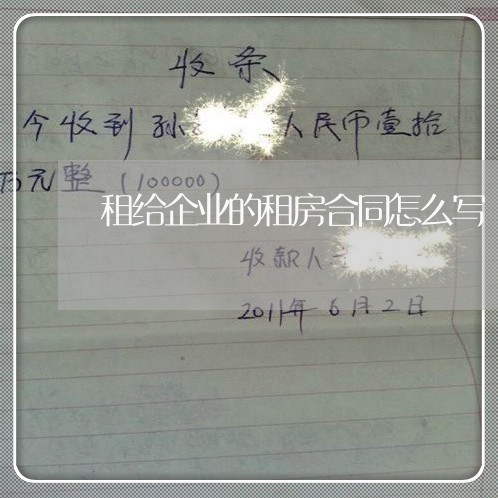 收条
今收到孙 人民币壹拾
万元整（100000）
租给企业的租房合同怎么写
收款人
2011年6月2日